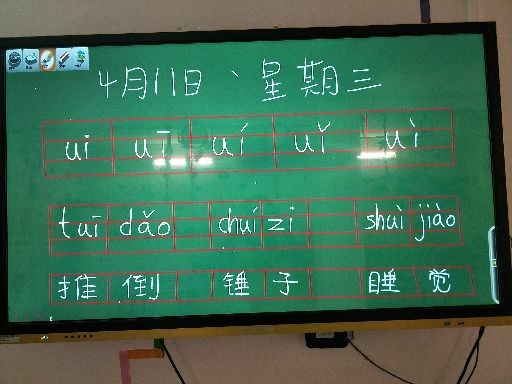 4月11日、星期三
ui uī uí uǐ uì
tuī dǎo chuí zi shuì jiào
推倒 锤子 睡觉